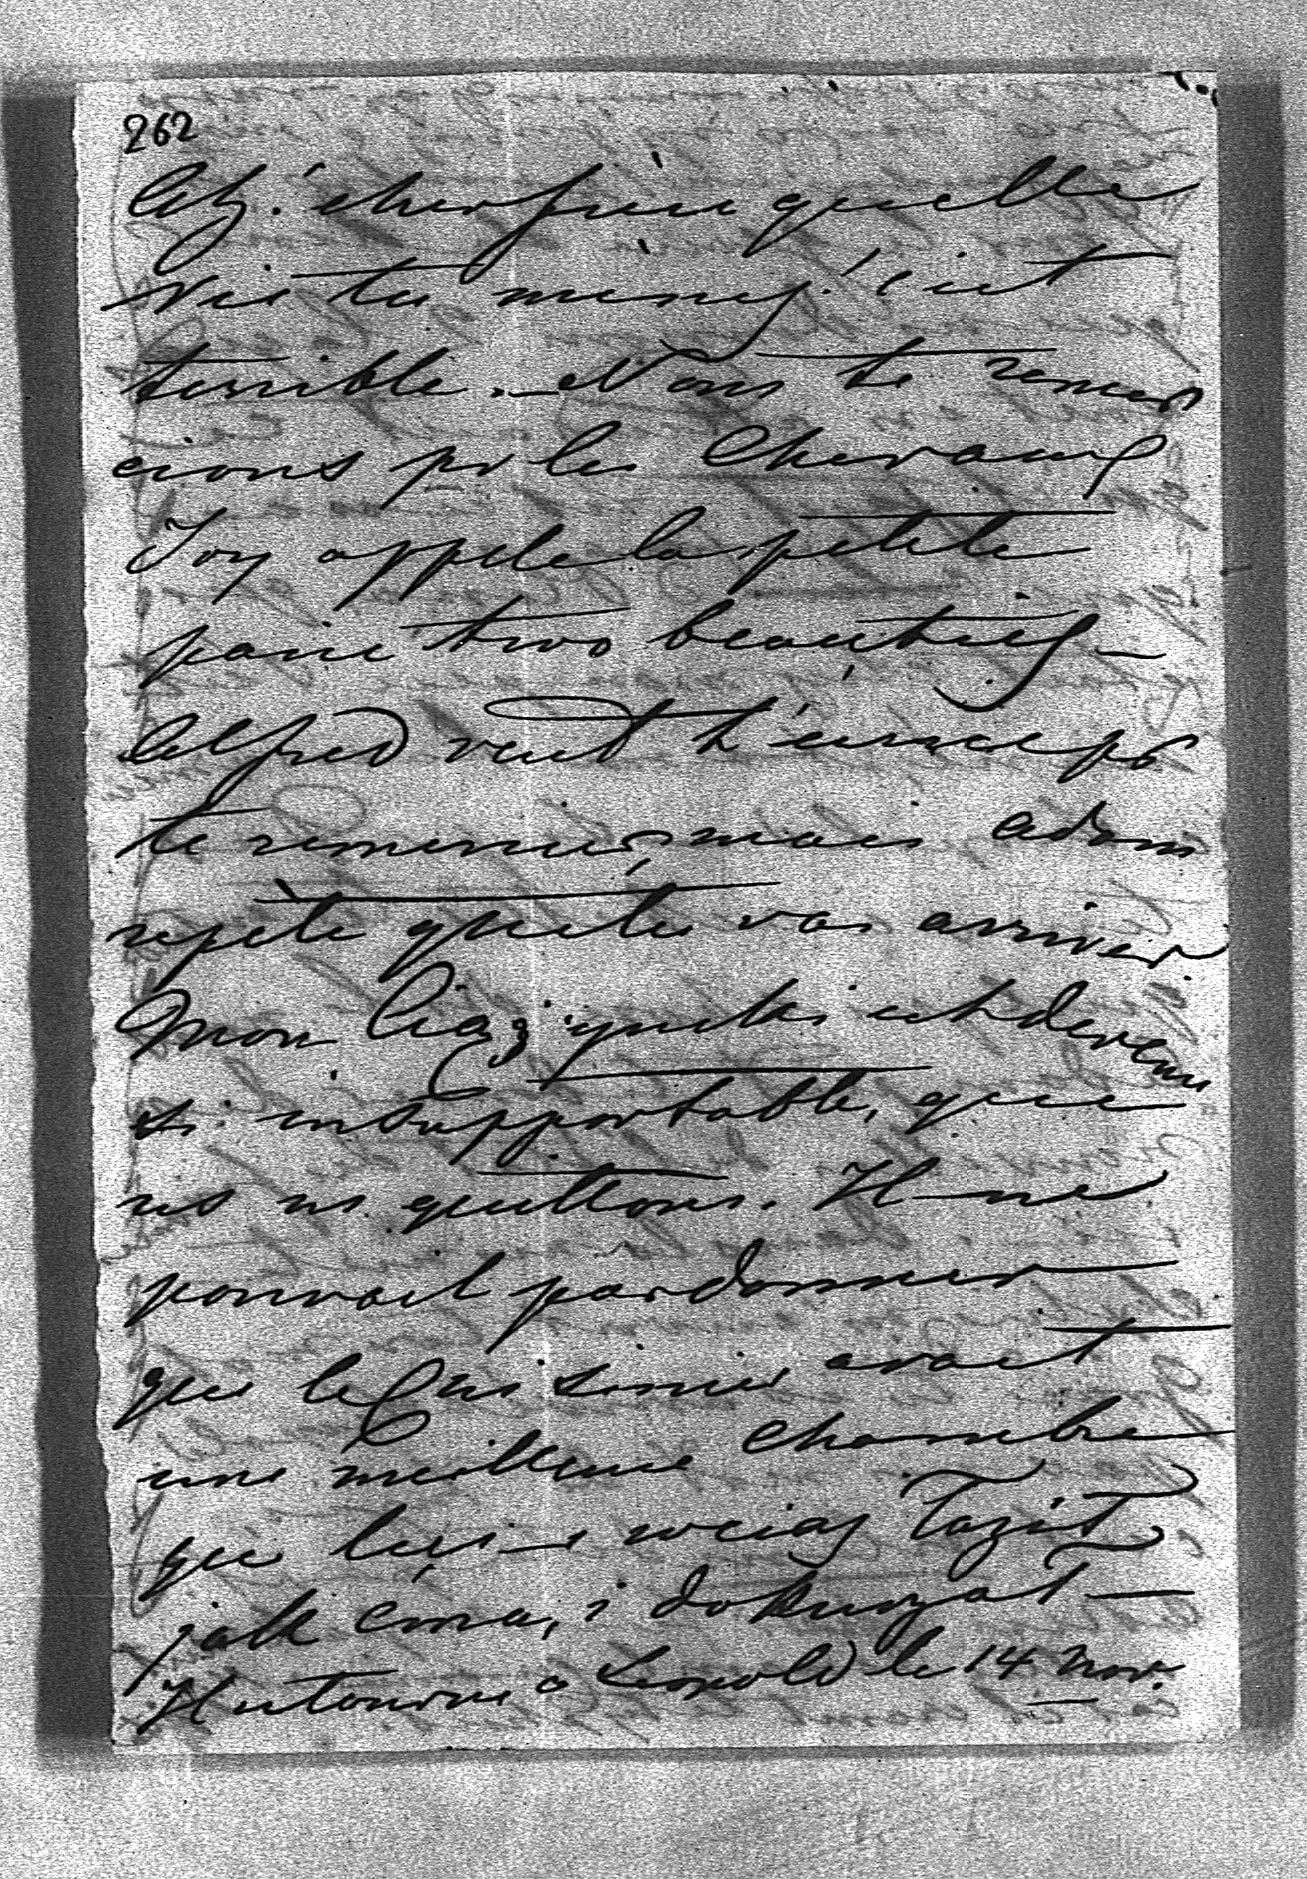 262
Ah! cher frère quelle
vie tu mènes! c'est
terrible. — Nous te remer
cions pr les chevaux
Joy appele la petite
paire two beauties —
Alfred veut t'écrire pr
te remercier, mais Adam
repète que tu vas arriver
Mon est devenu
si insupportable, que
ns ns quittons. Il ne
pouvait pardonner
que le Cuisinier avait
une meilleure chambre
que lui — wciąż łaził
jak ćma, i dokuczał —
Il retourne a Leopold le 14 Nov.